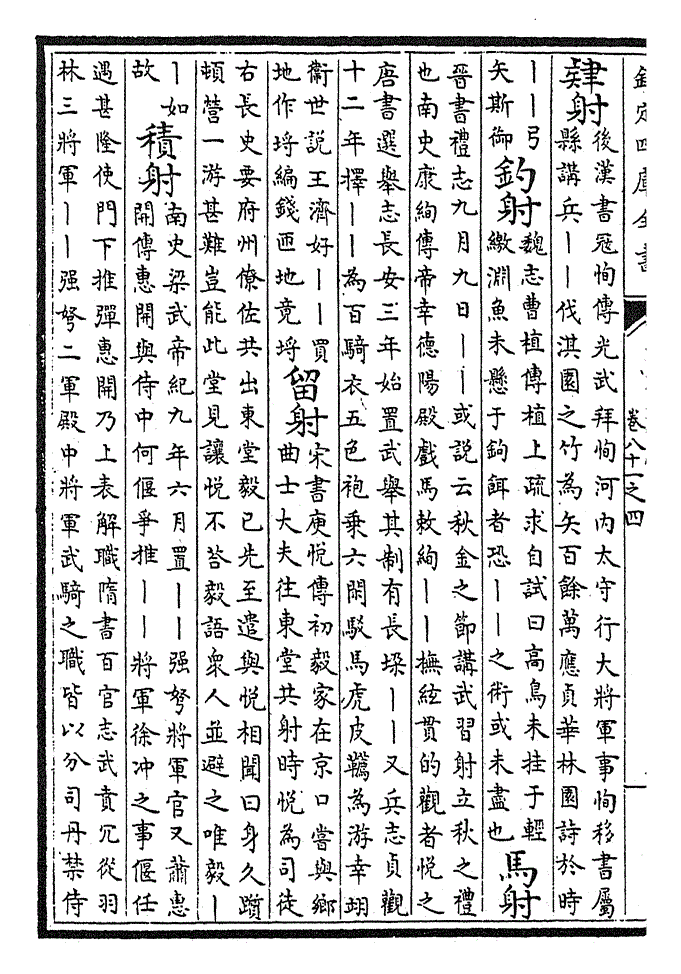 欽定四庫全書
卷八十一之四
肄射
後漢書冦恂傳光武拜恂河内太守行大將軍事恂移書屬
縣講兵丨丨伐淇園之竹為矢百餘萬應貞華林園詩於時
丨丨弓
矢斯御
釣射
魏志曹植傳植上疏求自試曰高鳥未挂于輕
繳淵魚未懸于鈎餌者恐丨丨之術或未盡也
馬射
晉書禮志九月九日丨丨或說云秋金之節講武習射立秋之禮
也南史康絢傳帝幸德陽殿戲馬敕絢丨丨撫絃貫的觀者悅之
唐書選舉志長安三年始置武舉其制有長垛丨丨又兵志貞觀
十二年擇丨丨為百騎衣五色袍乘六閑駮馬虎皮韀為游幸翊
衞世說王濟好丨丨買
地作埒編錢匝地竟埒
留射
宋書庾悅傳初毅家在京口嘗與鄉
曲士大夫往東堂共射時悅為司徒
右長史要府州僚佐共出東堂毅已先至遣與悅相聞曰身久躓
頓營一游甚難豈能此堂見讓悅不荅毅語衆人並避之唯毅丨
丨如
故
積射
南史梁武帝紀九年六月置丨丨强弩將軍官又蕭惠
開傳惠開與侍中何偃爭推丨丨將軍徐冲之事偃任
遇甚隆使門下推彈惠開乃上表解職隋書百官志武賁冗從羽
林三將軍丨丨强弩二軍殿中將軍武騎之職皆以分司丹禁侍